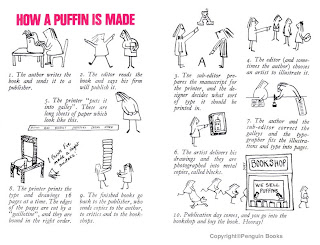 HOW A PUFFIN IS MADE
1. The author writes the
book and sends it to a
publisher.
2. The editor reads the
book and says his firm
will publish it.
3. The sub-editor pre-
pares the manuscript for
the printer, and the de-
signer decides what sort
of type it should be
printed in.
4. The editor (and some-
times the author) chooses
an artist to illustrate it.
5. The printer "puts it
into galley". There are
long sheets of paper which
look like this.
6. The artist delivers his
drawings and they are
photographed into metal
copies, called blocks.
7. The author and the
sub-editor correct the
galleys and the typo-
grapher fits the illustra-
tions and type into pages.
8. The printer prints the
type and drawings 16
pages at a time. The edges
of the pages are cut by a
"guillotine", and they are
bound in the right order.
9. The finished books go
back to the publisher, who
sends copies to the author,
to critics and to the book-
shops.
BOOKSHOP
WE SELL
PUFFINS
10. Publication day comes, and you go into the
bookshop and buy the book. Hooray!
Copyright@Penguin Books